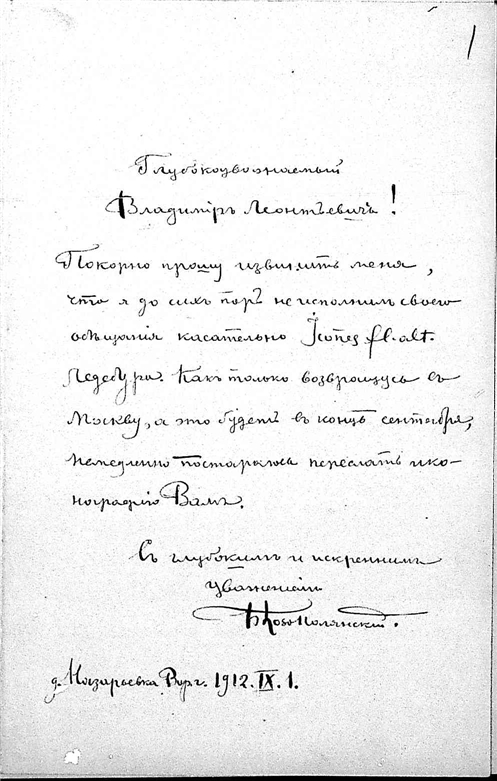 1
Глубокоуважаемый
Владимiръ Леонтьевичъ!
Покорно прошу извинить меня,
что я до сихъ поръ не исполнилъ своего
обѣщанiя касательно Icones fl. alt.
Ледебура. Какъ только возвращусь въ
Москву, а это будетъ въ концѣ сентября,
немедленно постараюсь переслать ико-
нографiю Вамъ.
Съ глубокимъ и искреннимъ
уваженiемъ
Б Козо-Полянскiй.
д. 1912.IX.1.